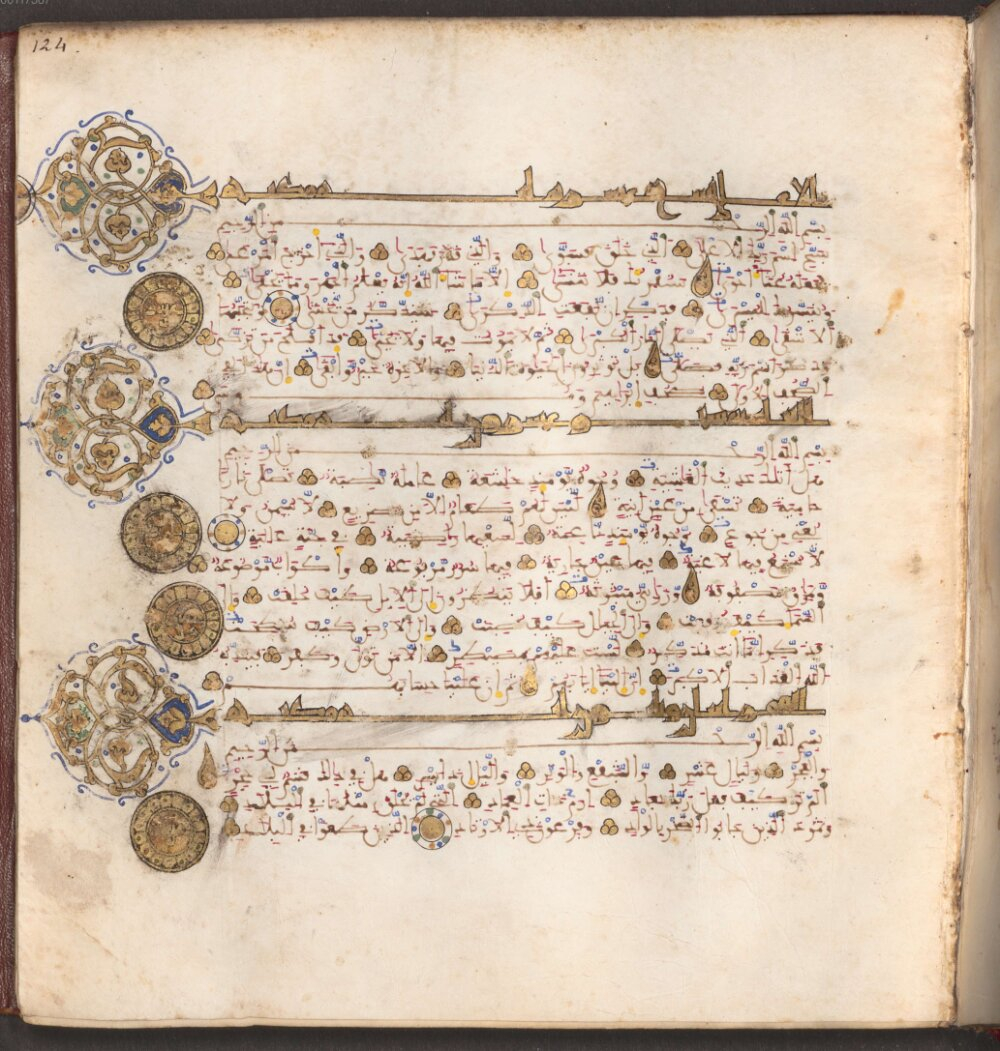 124.
الاعلى تسع عشرة مكية
بسم الله الرحمن الرحيم
سبح اسم ربك الاعلى الذي خلق فسوى والذي قدر فهدى والذي اخرج المرعى
فجعله غثاء احوى سنقرئك فلا تنسى الا ما شاء الله انه يعلم الجهر وما يخفى
ونيسرك لليسرى فذكر ان نفعت الذكرى سيذكر من يخشى ويتجنبها
الاشقى الذي يصلى النار الكبرى ثم لا يموت فيها ولا يحيى قد افلح من تزكى
وذكر اسم ربه فصلى بل توثرون الحيوة الدنيا والاخرة خير وابقى ان هذا لفي
الصحف الاولى صحف ابرهيم وموسى
وعشرون مكية
بسم الله الرحمن الرحيم
هل اتيك حديث الغشية وجوه يومئذ خشعة عاملة ناصبة تصلى نارا
حامية تسقى من عين انية ليس لهم طعام الا من ضريع لا يسمن ولا
يغني من جوع وجوه يومئذ ناعمة لسعيها راضية في جنة عالية
لا تسمع فيها لغية فيها عين جارية فيها سرر مرفوعة واكواب موضوعة
ونمارق مصفوفة وزرابي مبثوثة افلا ينظرون الى الابل كيف خلقت والى
السماء كيف رفعت والى الجبال كيف نصبت والى الارض كيف سطحت
فذكر انما انت مذكر لست عليهم بمصيطر الا من تولى وكفر فيعذبه
الله العذاب الاكبر ان الينا ايابهم ثم ان علينا حسابهم
الفجر وثلاثون مكية
بسم الله الرحمن الرحيم
والفجر وليال عشر والشفع والوتر والليل اذا يسر هل في ذلك قسم لذي حجر
الم تر كيف فعل ربك بعاد ارم ذات العماد التي لم يخلق مثلها في البلاد
وثمود الذين جابوا الصخر بالواد وفرعون ذي الاوتاد الذين طغوا في البلاد